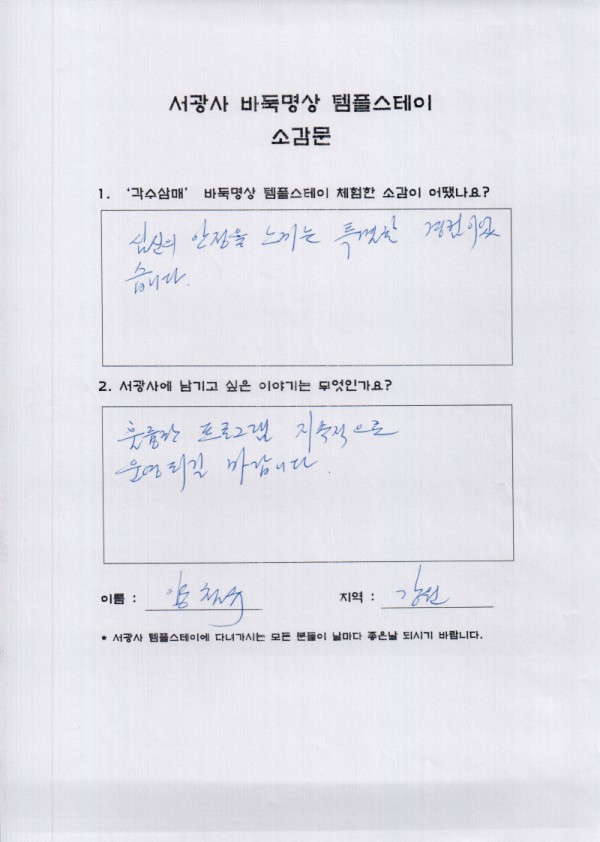 서광사 바둑명상 템플스테이
소감문
1. ‘각수삼매’ 바둑명상 템플스테이 체험한 소감이 어땠나요?
심신의 안정을 느끼는 특별한 경험이었
습니다.
2. 서광사에 남기고 싶은 이야기는 무엇인가요?
훌륭한 프로그램 지속적으로
운영되길 바랍니다.
이름 :
지역 : 강원
* 서광사 템플스테이에 다녀가시는 모든 분들이 날마다 좋은날 되시기 바랍니다.